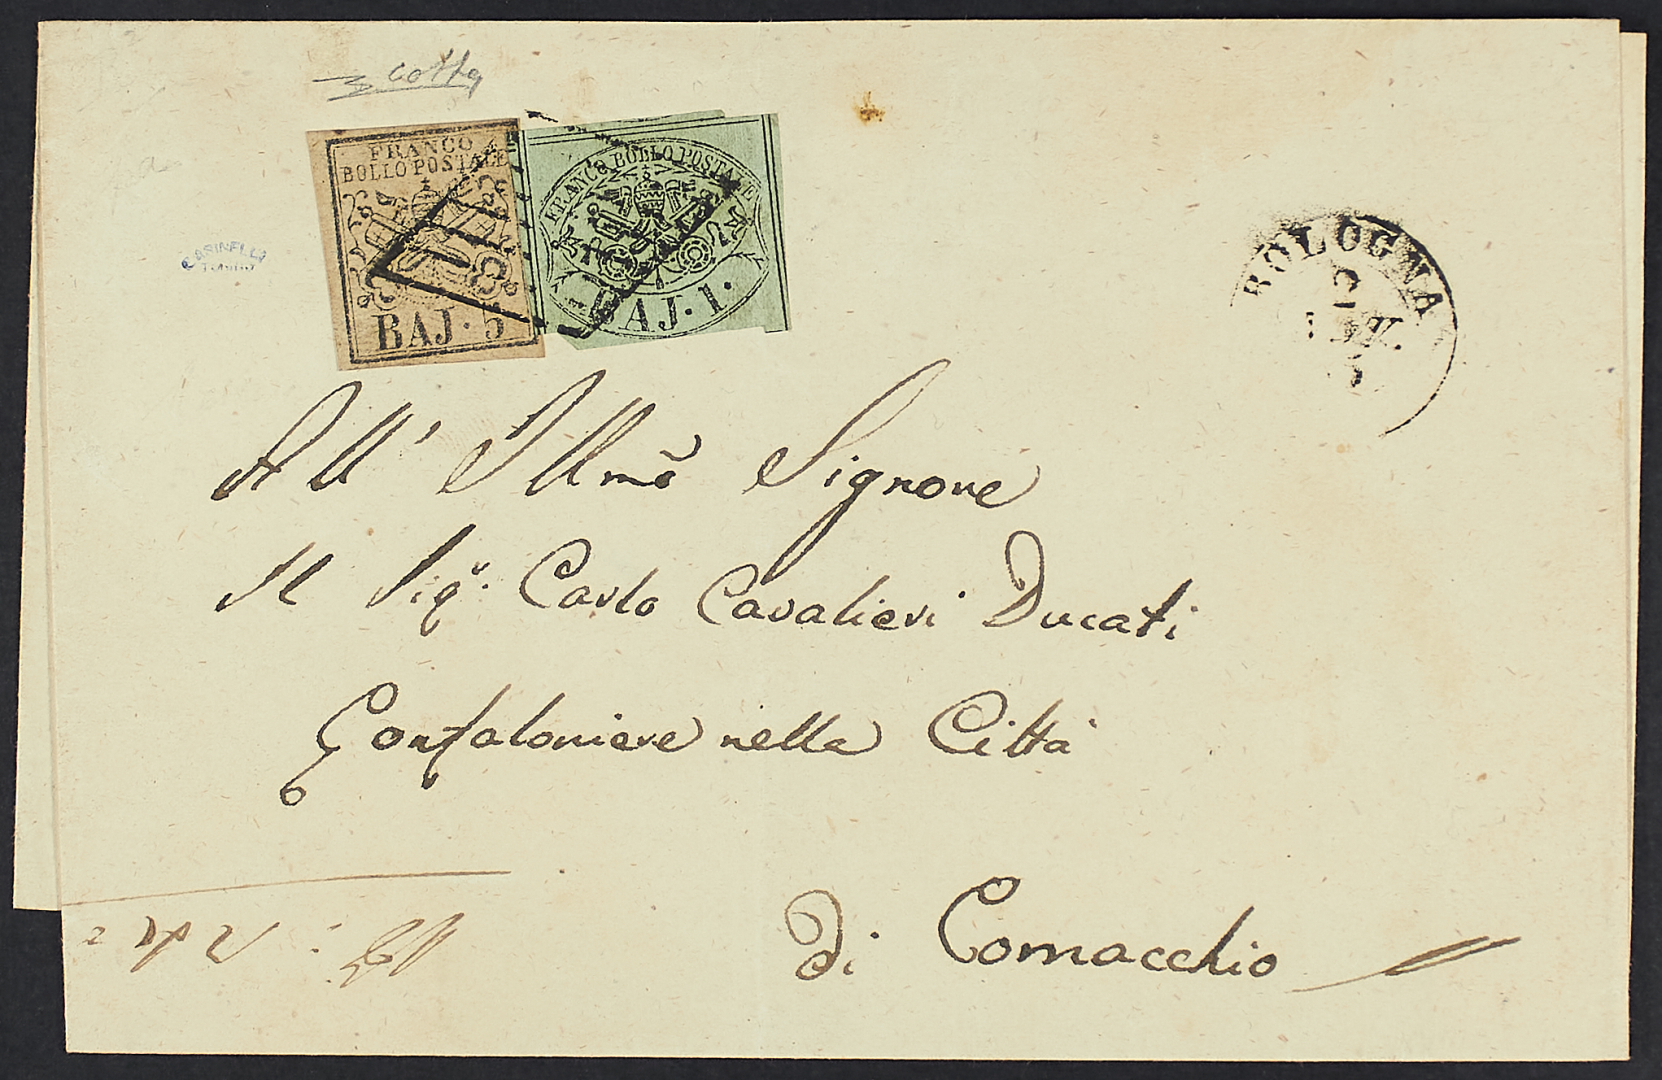 cotta
FRANCO
BOLLO POSTALE
BAJ · 5
FRANCO BOLLO POSTALE
BAJ · 1 ·
BOLOGNA
All' Illmo Signore
Il Sigr. Carlo Cavalieri Ducati
Gonfaloniere nella Città
di Comacchio